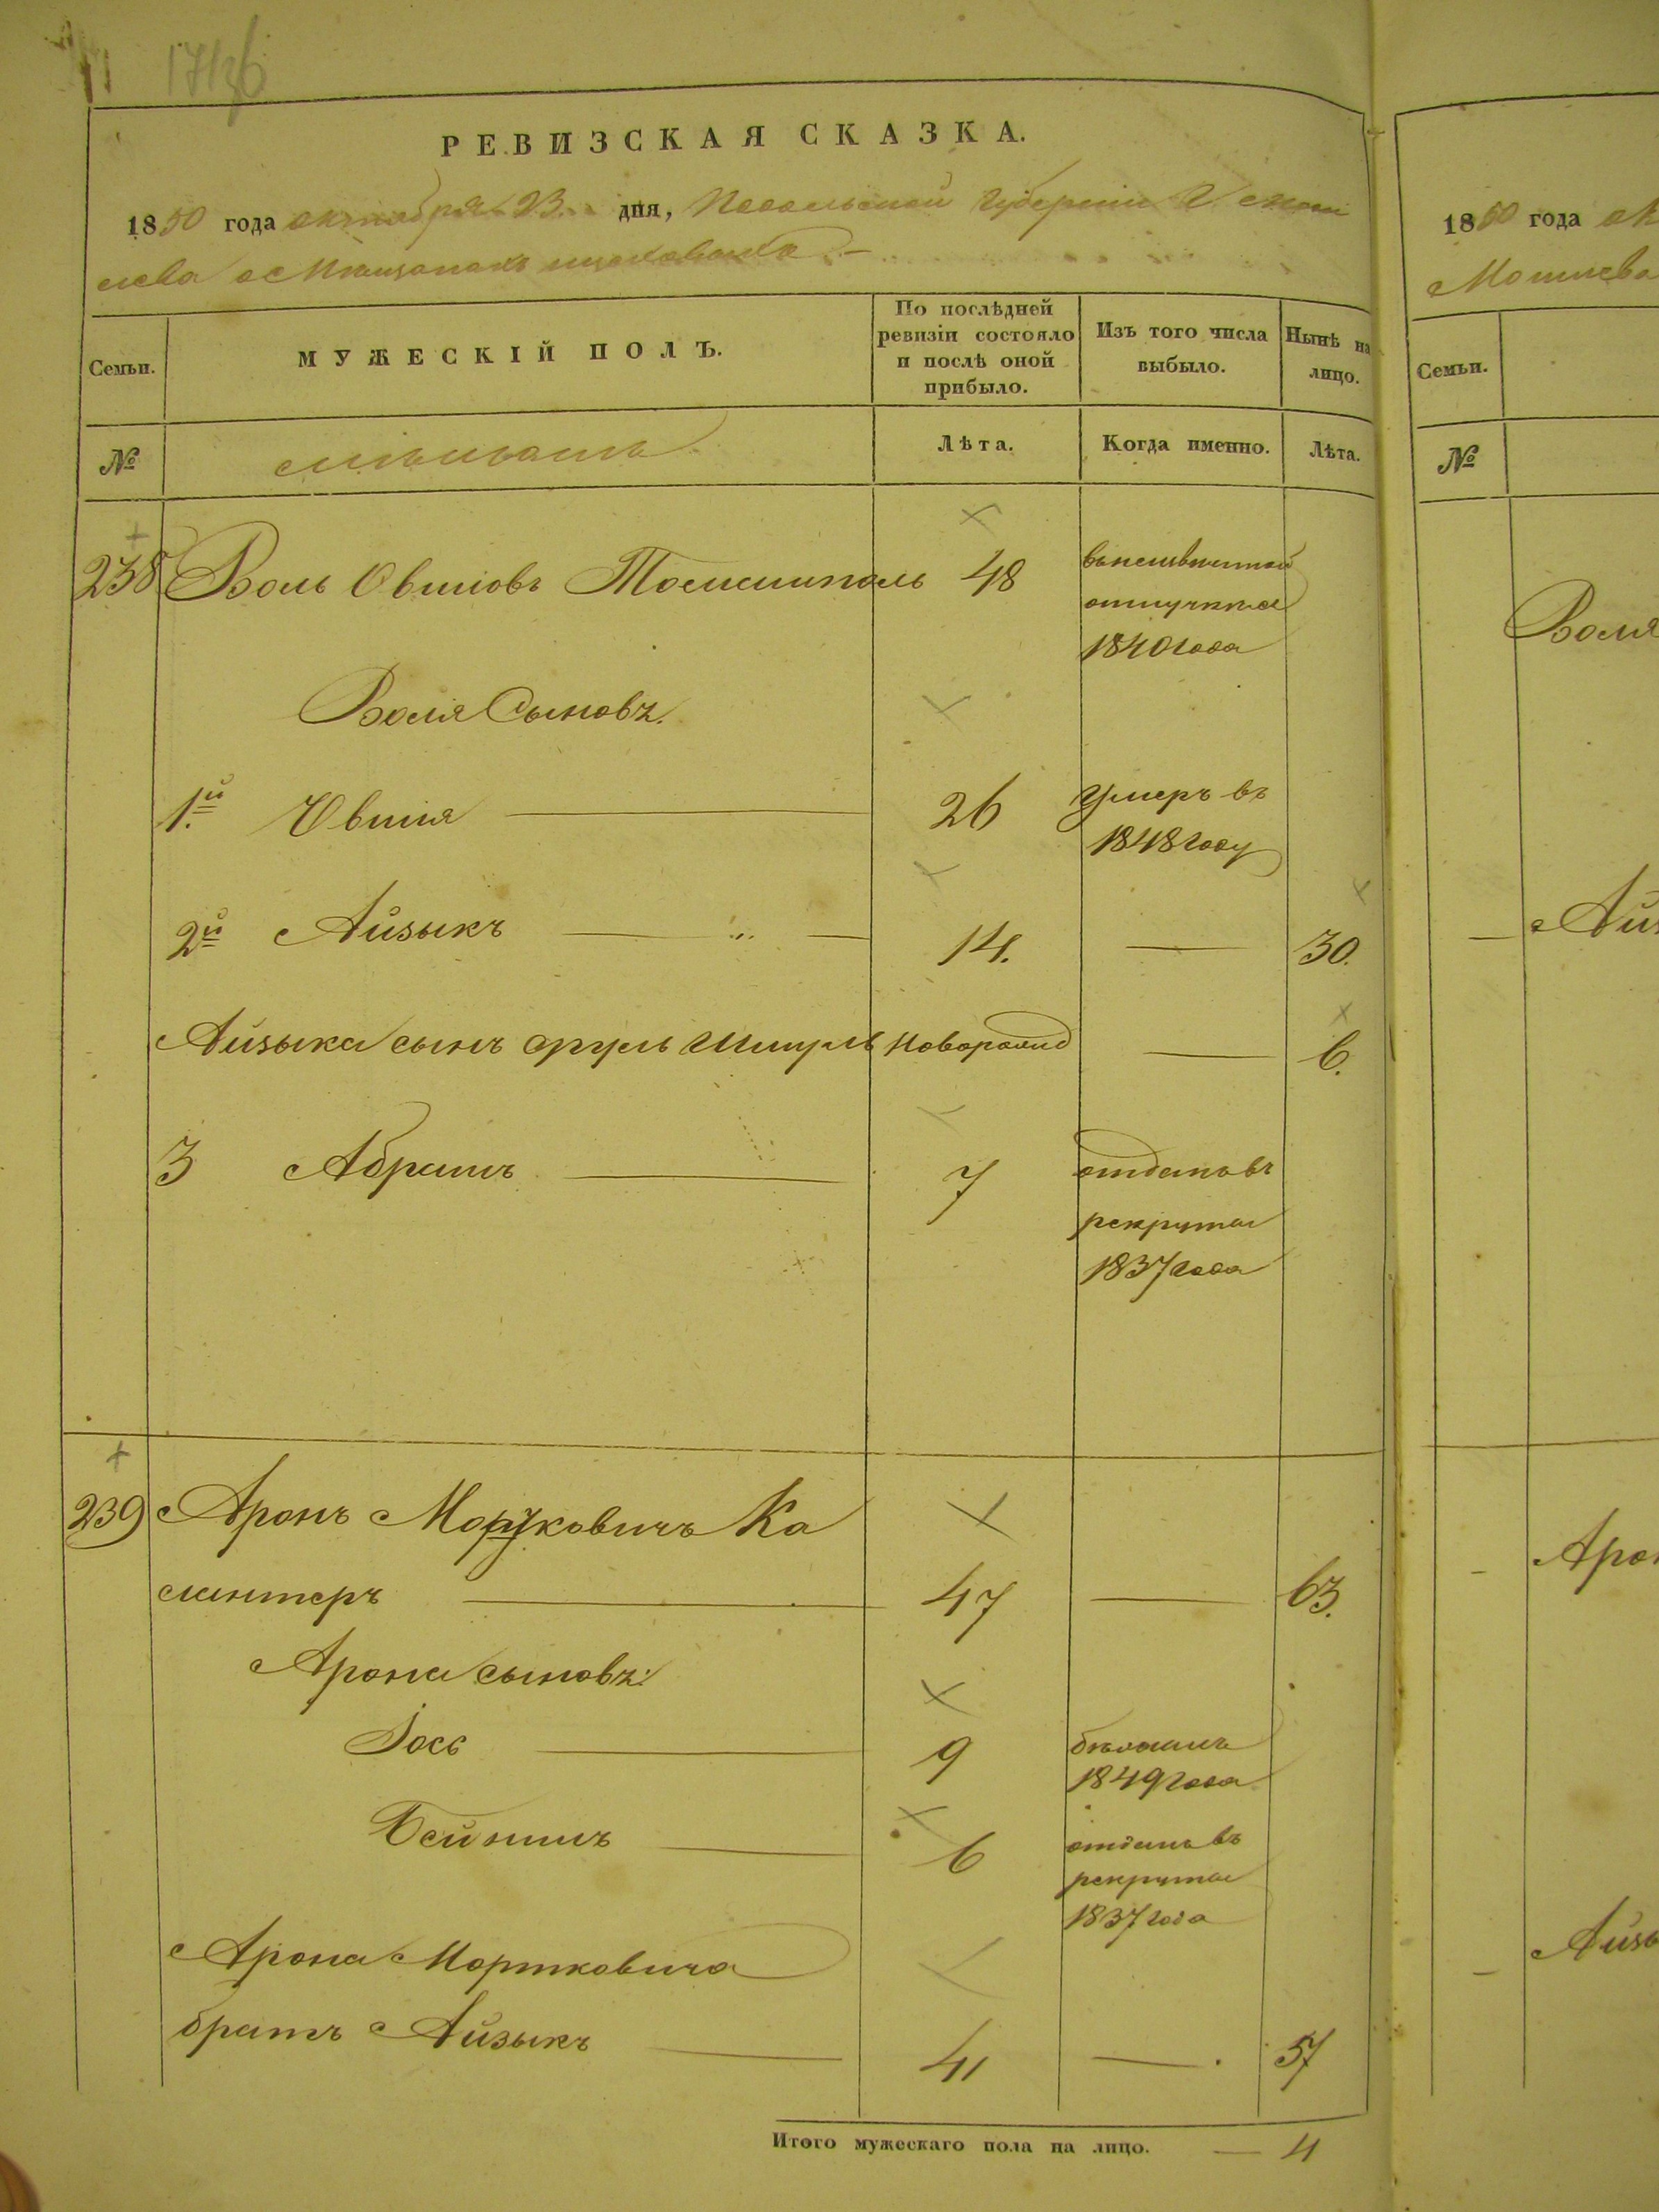 РЕВИЗСКАЯ СКАЗКА.
1850 года октября 23 дня, Подольской Губернии Г. Моги
лева о Мещанахъ
Семьи.
МУЖЕСКІЙ ПОЛЪ.
По послѣдней ревизіи состояло и послѣ оной прибыло.
Изъ того числа выбыло.
Нынѣ на лицо.
№
Лѣта.
Когда именно.
Лѣта.
238 Воль Овшіовъ 48
отлучкѣ
1840 года
Воля Сыновъ.
1.й Овшія 26 Умеръ въ
1848 году
2й Айзыкъ 14. 30.
Айзыка сынъ Сруль Шмуль новорожд 6.
3 Абрамъ 7 отданъ въ
рекруты
1837 года
239 Аронъ Мортковичъ Ка
лантеръ 47 63.
Арона сыновъ:
Іось 9 бѣжалъ
1849 года
Бейнишъ 6 отданъ въ
рекруты
1837 года
Арона Мортковича
братъ Айзыкъ 41 57
Итого мужескаго пола на лицо. — 4
1850 года
Могилева
Семьи.
№
Воля
Айз
Аро
Айзы